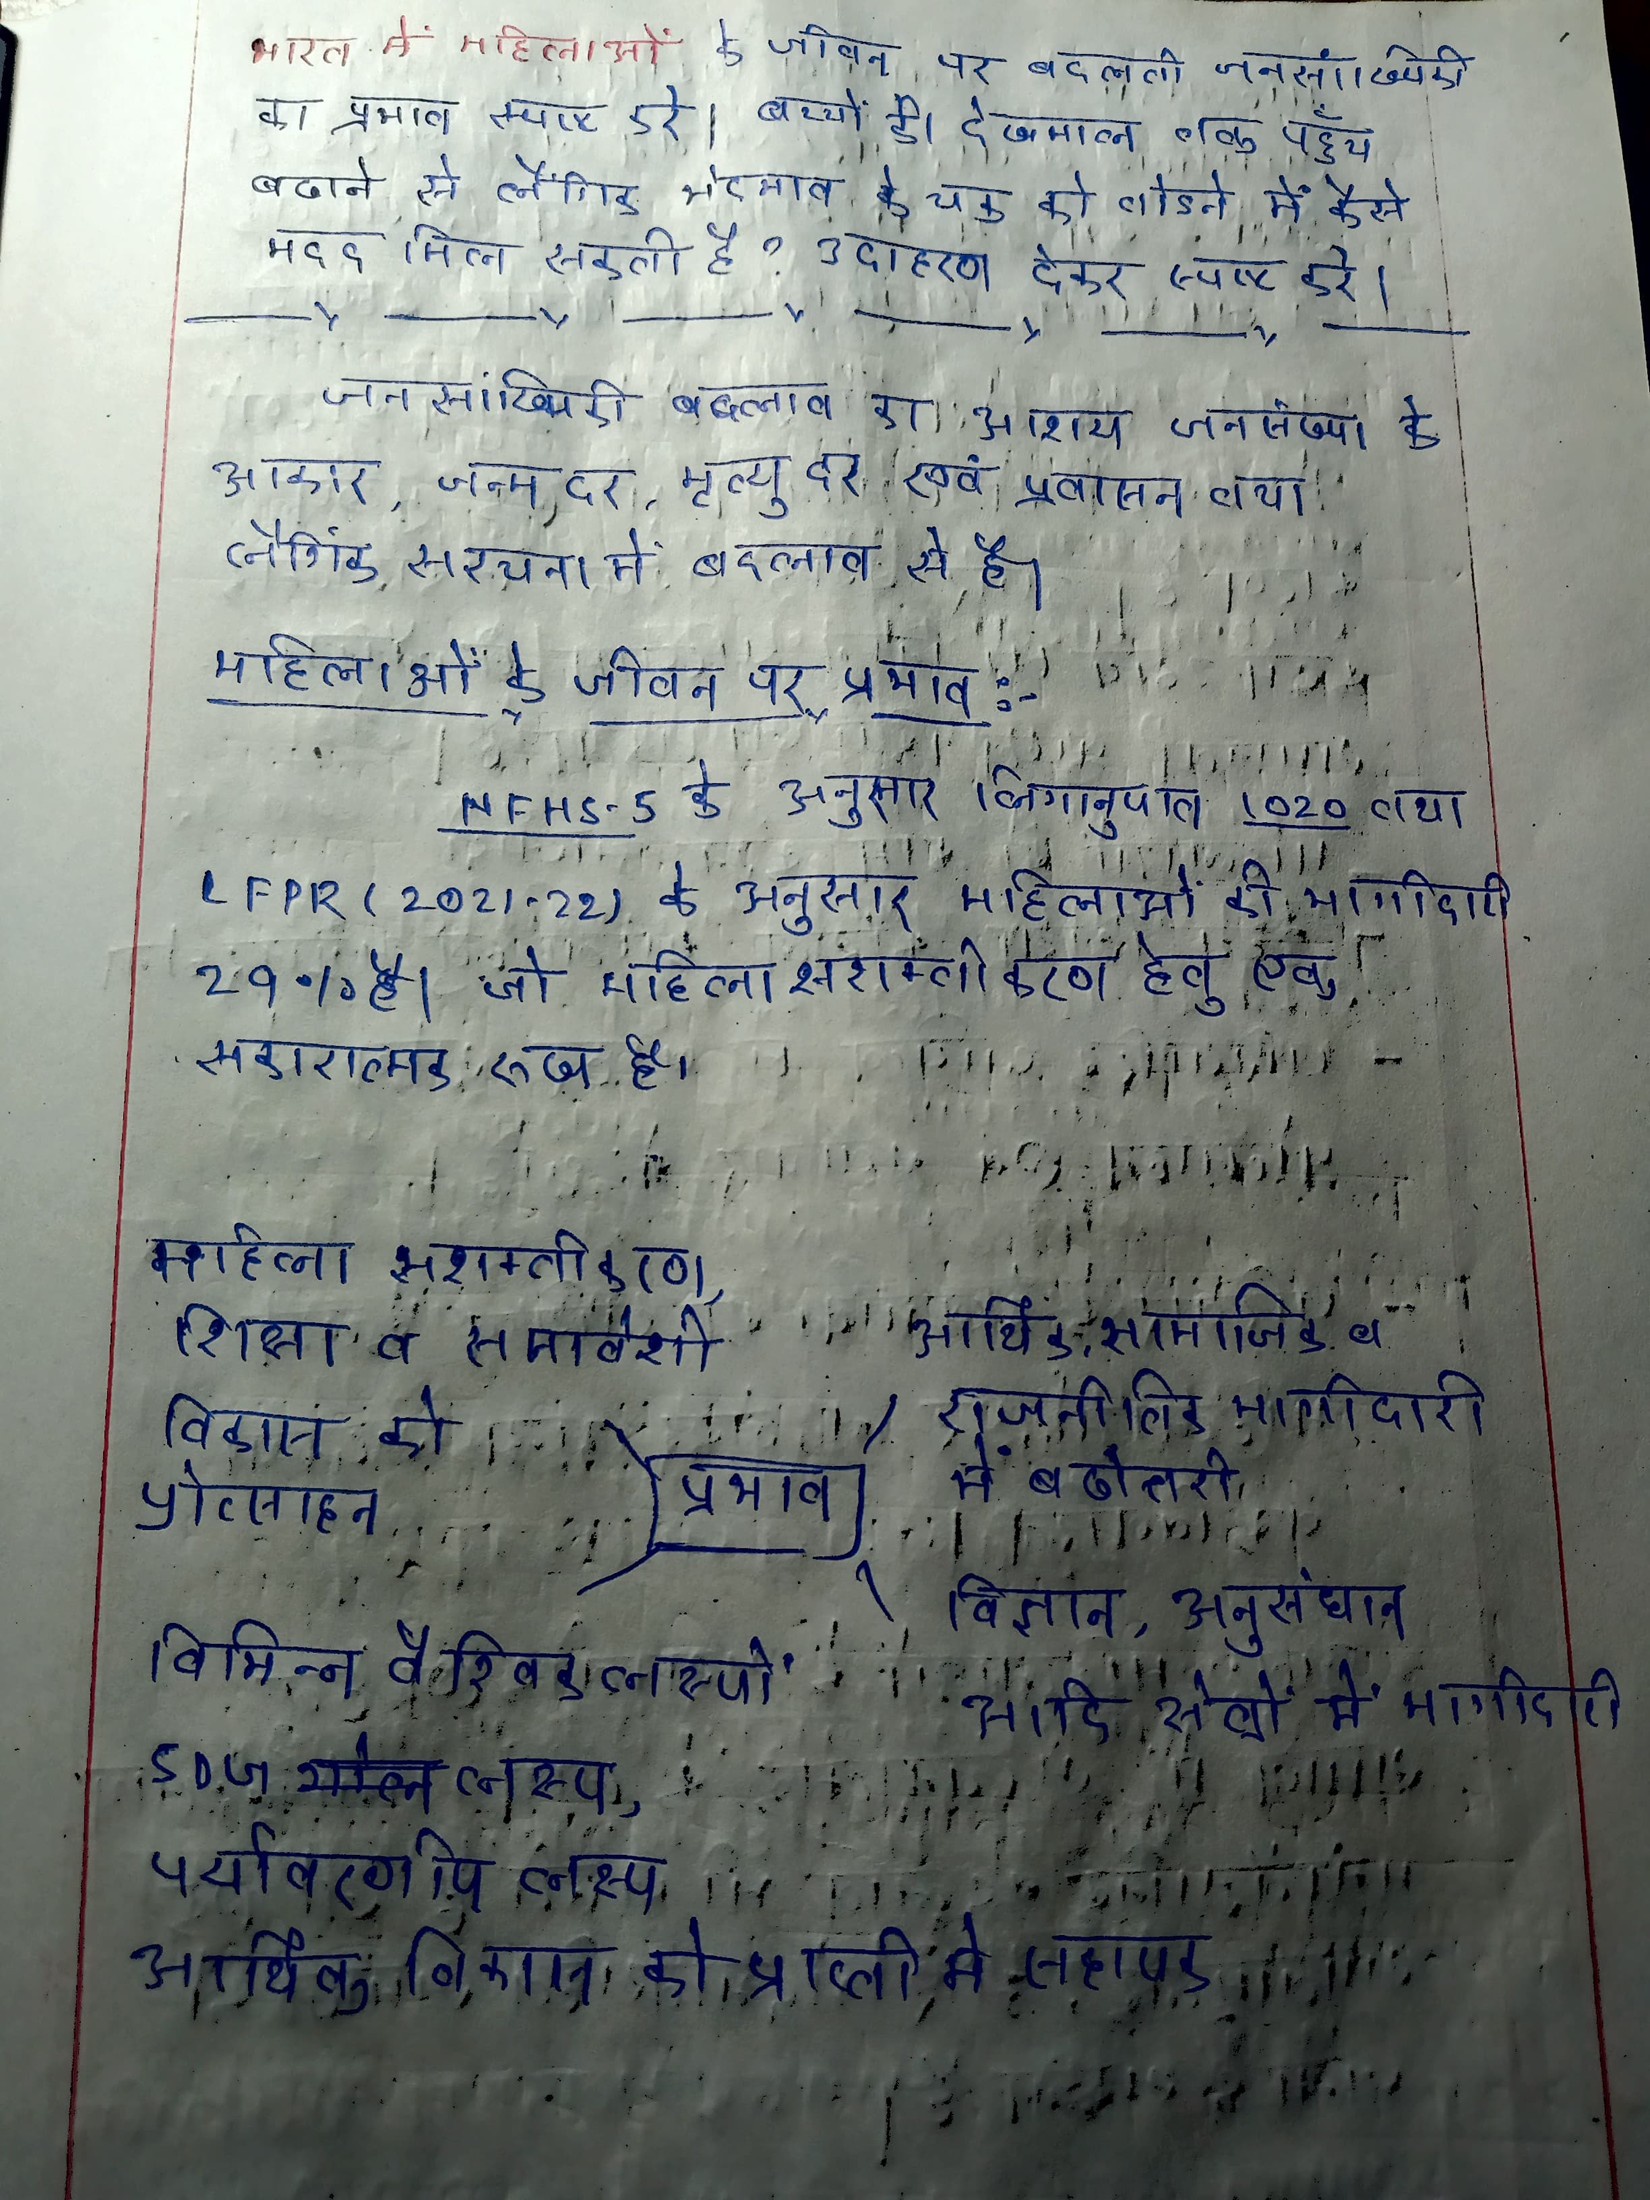 भारत में महिलाओं के जीवन पर बदलती जनसांख्यिकी
का प्रभाव स्पष्ट करे। बच्चों की देखभाल तक पहुँच
बढाने से लैंगिक भेदभाव के चक्र को तोडने में कैसे
मदद मिल सकती है? उदाहरण देकर स्पष्ट करे।
जनसांख्यिकी बदलाव का आशय जनसंख्या के
आकार, जन्म दर, मृत्यु दर एवं प्रवासन तथा
लैगिंक सरचना में बदलाव से है।
महिलाओं के जीवन पर प्रभाव :-
NFHS-5 के अनुसार लिगानुपात 1020 तथा
LFPR (2021-22) के अनुसार महिलाओं की भागीदारी
29% है। जो महिला सशक्तीकरण हेतु एक
सकारात्मक रूख है।
महिला सशक्तीकरण,
शिक्षा व समावेशी
विकास को
प्रोत्साहन
प्रभाव
आर्थिक, सामाजिक व
राजनीतिक भागीदारी
में बढोत्तरी
विज्ञान, अनुसंधान
आदि क्षेत्रों में भागीदारी
विभिन्न वैश्विक लक्ष्यों
SDG लक्ष्य,
पर्यावरणीय लक्ष्य
आर्थिक विकास को प्राप्ती मे सहायक